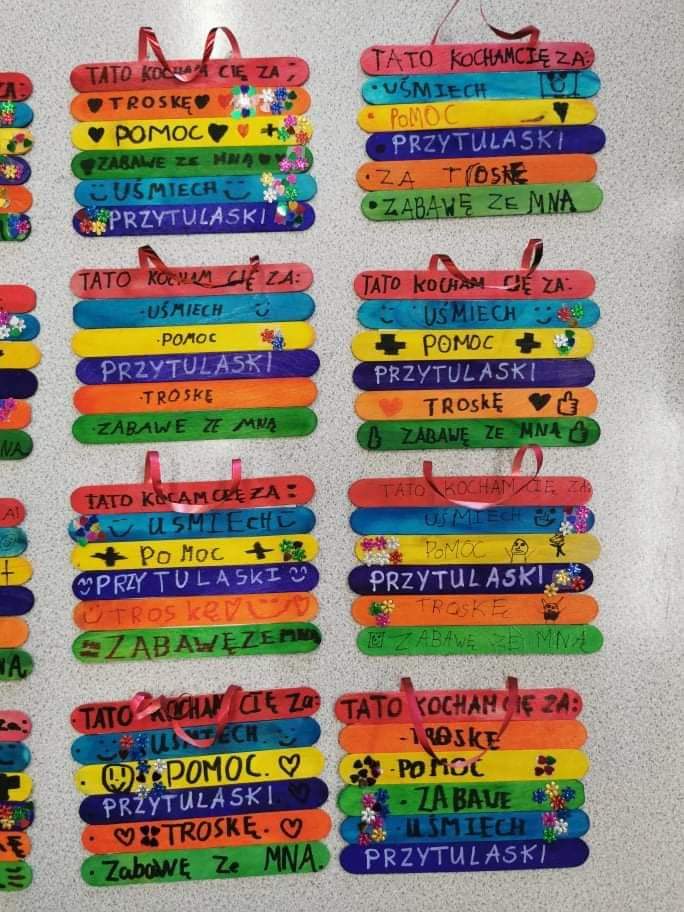 TATO KOCHAM CIĘ ZA ;
TROSKĘ
POMOC
ZABAWE ZE MNĄ
UŚMIECH
PRZYTULASKI
TATO KOCHAMCIĘ ZA:
UŚMIECH
POMOC
PRZYTULASKI
ZA TROSKĘ
ZABAWĘ ZE MNĄ
TATO KOCHAM CIĘ ZA:
·UŚMIECH
·POMOC
PRZYTULASKI
·TROSKĘ
·ZABAWE ZE MNĄ
TATO KOCHAM CIĘ ZA:
UŚMIECH
POMOC
PRZYTULASKI
TROSKĘ
ZABAWĘ ZE MNĄ
TATO KOCAM CIĘ ZA:
USMIECH
POMOC
PRZYTULASKI
TROSKĘ
ZABAWĘ ZE MNĄ
TATO KOCHAM CIĘ ZA:
UŚMIECH
POMOC
PRZYTULASKI
TROSKĘ
ZABAWĘ ZE MNĄ
TATO KOCHAM CIĘ Za:
UŚMIECH
POMOC.
PRZYTULASKI
TROSKĘ.
ZaboWĘ Ze MNA.
TATO KOCHAM CIĘ ZA:
-TROSKĘ
·POMOC
·ZABAWE
·UŚMIECH
PRZYTULASKI